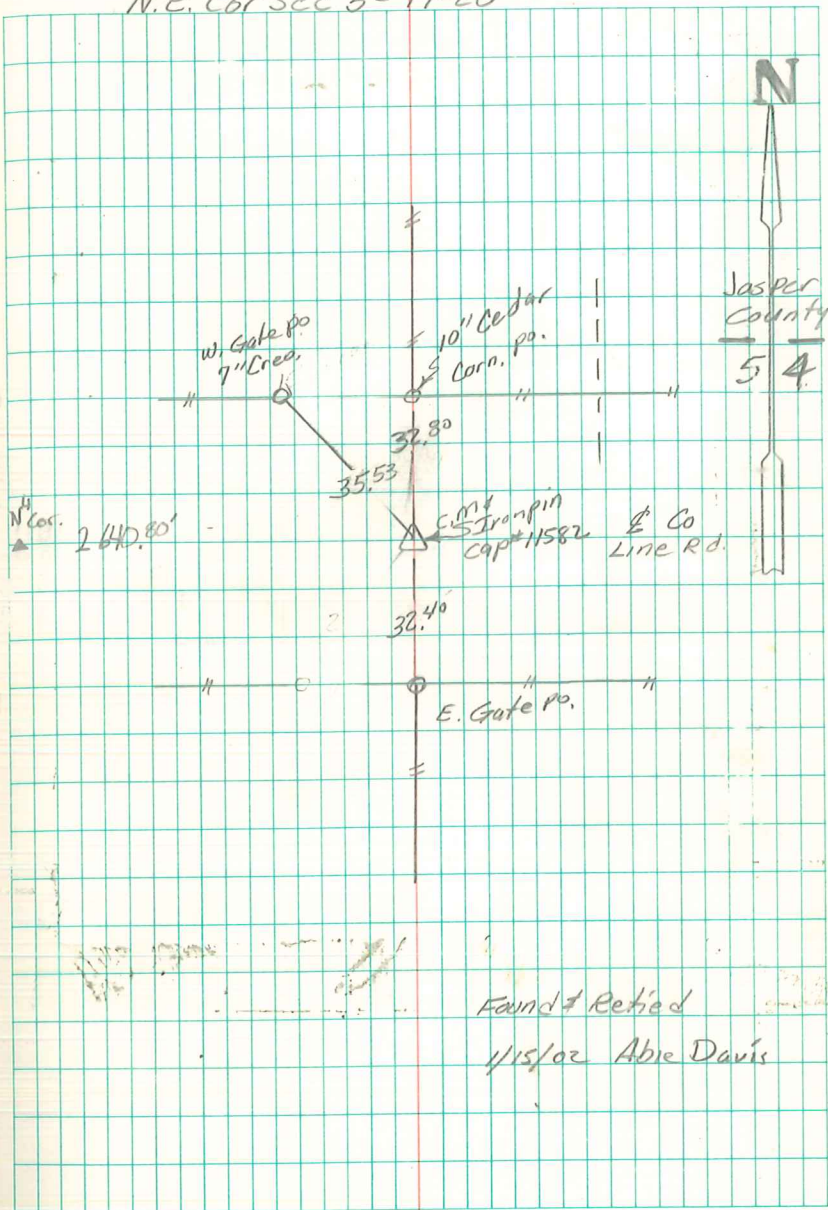 N.E. Cor Sec 5-19-20
N
Jasper
County
5 4
10" Cedar
Corn. po.
W. Gate po
7" Creo.
32.80
35.53
N¼ Cor.
2640.80'
C.M. &
5 Iron pin
Cap #11582
& Co
Line Rd.
32.40
E. Gate po.
Found & Retied
1/15/02 Abie Davis